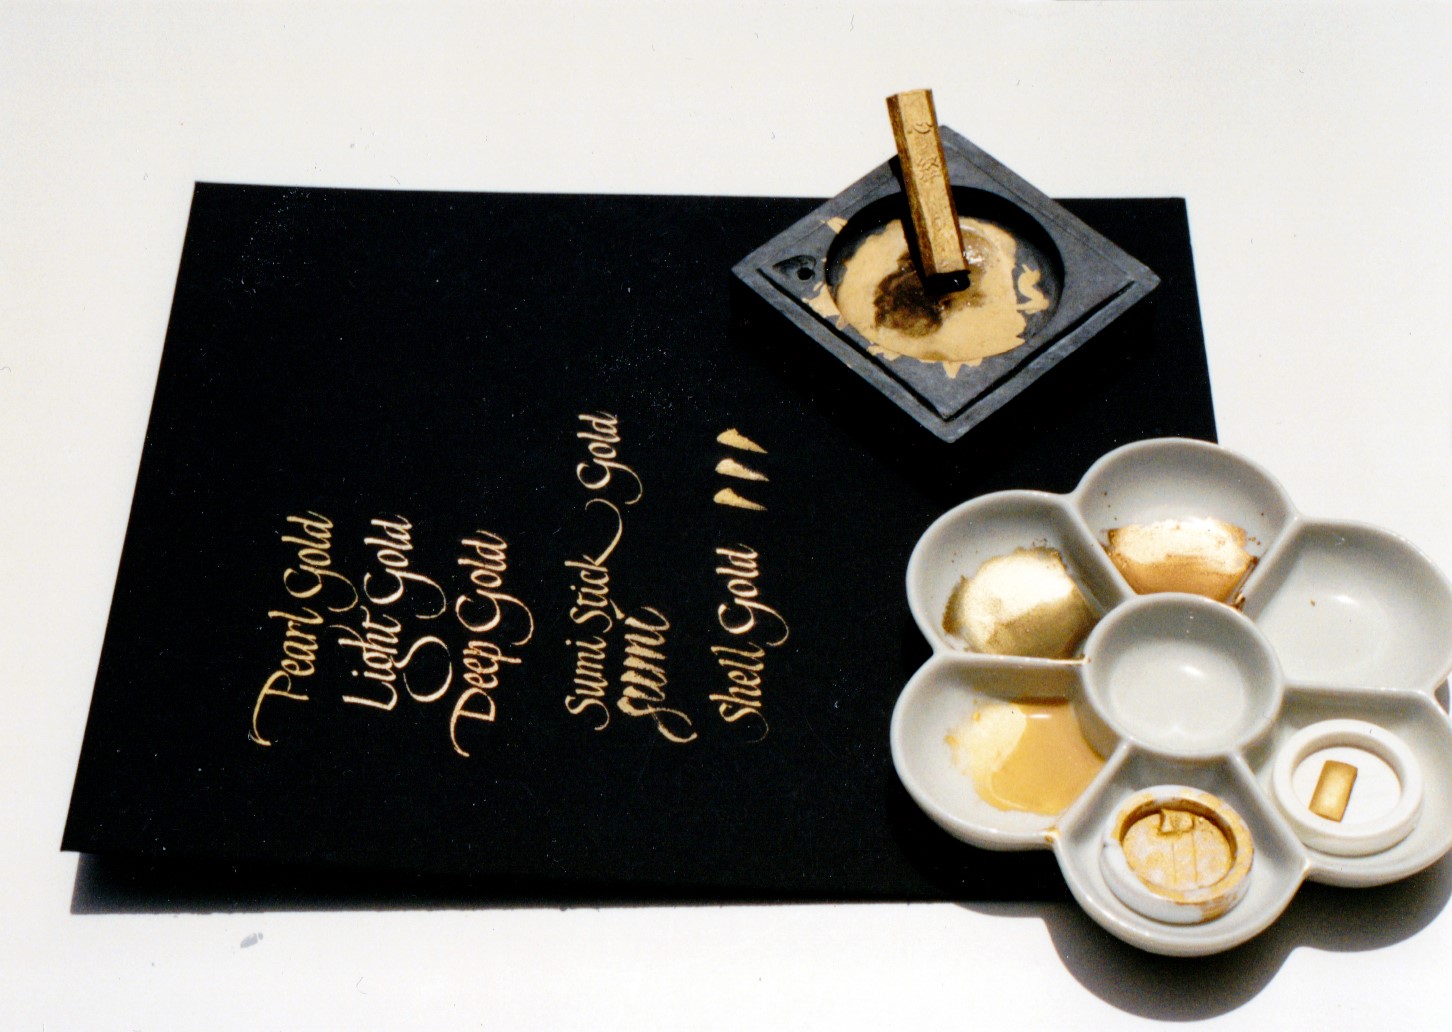 Pearl Gold
Light Gold
Deep Gold
Sumi Stick Gold
Sumi
Shell Gold